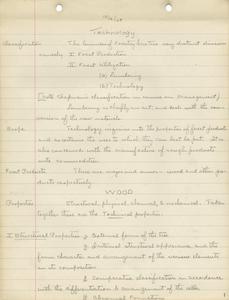 Technology
Classification The business of Forestry has two very distinct divisions
namely: I Forest Production
II Forest Utilization
(a) Lumbering
(b) Technology
(Note Chapman's classification in review on Management)
Lumbering is chiefly an art and deals with the conversion
of the raw materials.
Scope Technology inquires into the properties of forest products
and ascertains the uses to which they can best be put. It is
also concerned with the manufacture of rough products
into commodities.
Forest Products These are major and minor - wood and other products
respectively.
WOOD
Properties Structural, physical, chemical, & mechanical. Taken
together these are the Technical properties.
I Structural Properties External forms of the tree
Internal structural appearance, and the
form character and arrangement of the various elements
in its composition
Comparative classification in accordance
with the differentiation & arrangement of the cells
1